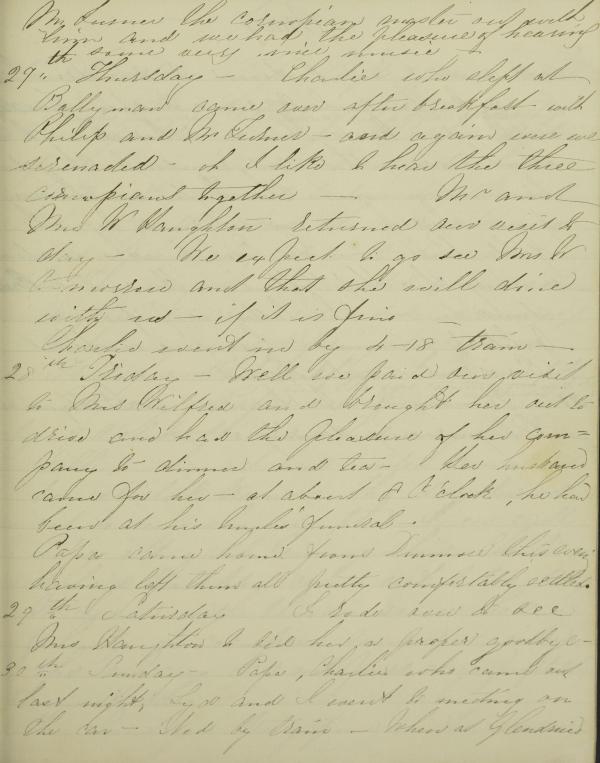 Mr Turner the cornopian master out with
him and we had the pleasure of hearing
some very nice music -
29th Thursday - Charlie who slept at
Ballyman came over after breakfast with
Philip and Mr Turner - and again were we
serenaded - oh I like to hear the three
cornopians together - Mr and
Mrs W Haughton returned our visit to
day - We expect to go see Mrs W
tomorrow and that she will dine
with us - if it is fine -
Charlie went in by 4-18 train -
28th Friday - Well we paid our visit
to Mrs Wilfred and brought her out to
drive and had the pleasure of her com=
pany to dinner and tea - Her husband
came for her - at about 8 O'clock, he had
been at his Uncles' funeral.
Papa came home from Dunmore this
having left them all pretty comfortably settled.
29th Saturday I rode over to see
Mrs Haughton to bid her a proper goodbye -
30th Sunday - Papa, Charlie who came out
last night, Lyd and I went to meeting on
the car - by train - When at